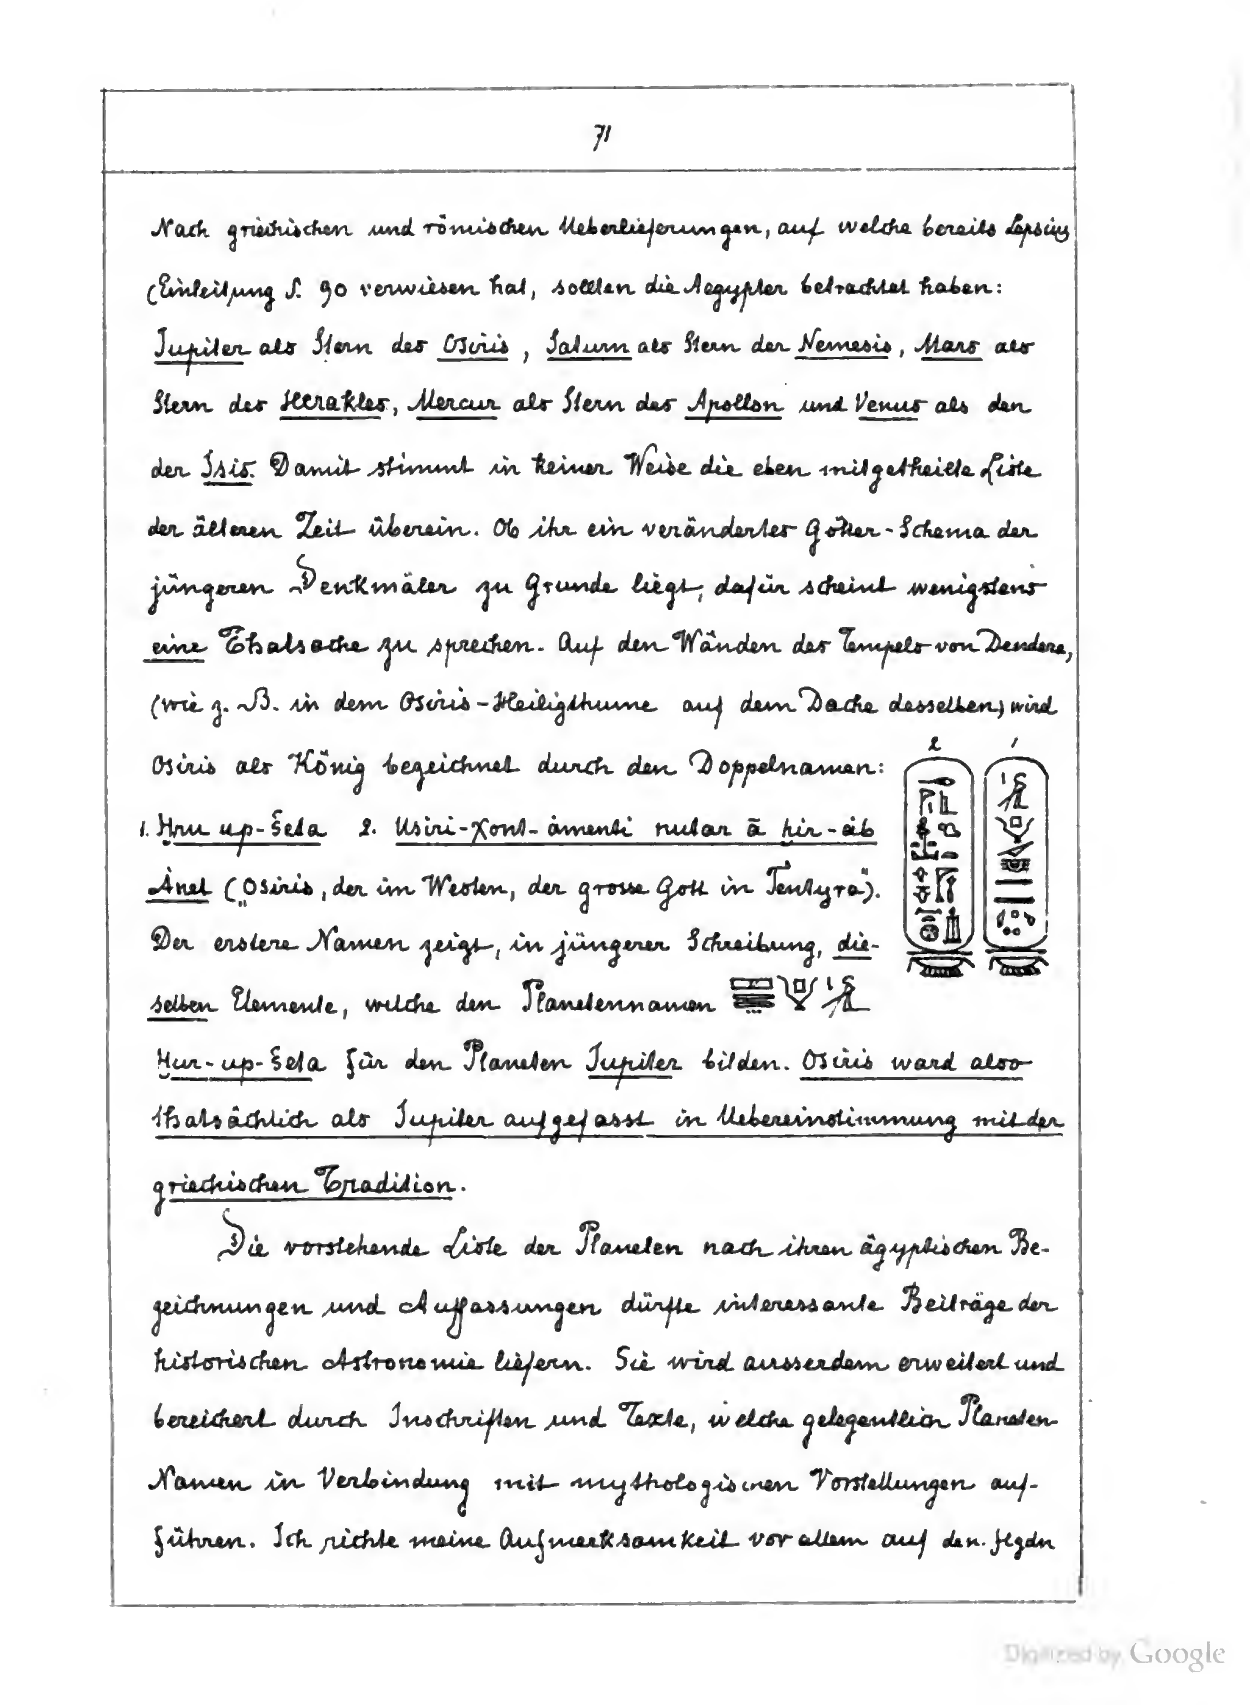 71
Nach griechischen und römischen Ueberlieferungen, auf welche bereits Lepsius
(Einleitung S. 90 verwiesen hat, sollten die Aegypter betrachtet haben:
Jupiter als Stern des Osiris, Saturn als Stern der Nemesis, Mars als
Stern des Herakles, Mercur als Stern des Apollon und Venus als den
der Isis. Damit stimmt in keiner Weise die eben mitgetheilte Liste
der älteren Zeit überein. Ob ihr ein verändertes Götter-Schema der
jüngeren Denkmäler zu Grunde liegt, dafür scheint wenigstens
eine Thatsache zu sprechen. Auf den Wänden des Tempels von Dendera,
(wie z. B. in dem Osiris-Heiligthume auf dem Dache desselben) wird
Osiris als König bezeichnet durch den Doppelnamen:
2 1
1. Ḥru up-šeta 2. Usiri-χont-amenti nutar ā ḥir-áb
Ȧnet (Osiris, der im Westen, der grosse Gott in Tentyra").
Der erstere Namen zeigt, in jüngerer Schreibung, die-
selben Elemente, welche den Planetennamen
Ḥur-up-šeta für den Planeten Jupiter bilden. Osiris ward also
thatsächlich als Jupiter aufgefasst in Uebereinstimmung mit der
griechischen Tradition.
Die vorstehende Liste der Planeten nach ihren ägyptischen Be-
zeichnungen und Auffassungen dürfte interessante Beiträge der
historischen Astronomie liefern. Sie wird ausserdem erweitert und
bereichert durch Inschriften und Texte, welche gelegentlich Planeten-
Namen in Verbindung mit mythologischen Vorstellungen auf-
führen. Ich richte meine Aufmerksamkeit vor allem auf den flgdn
Digitized by Google